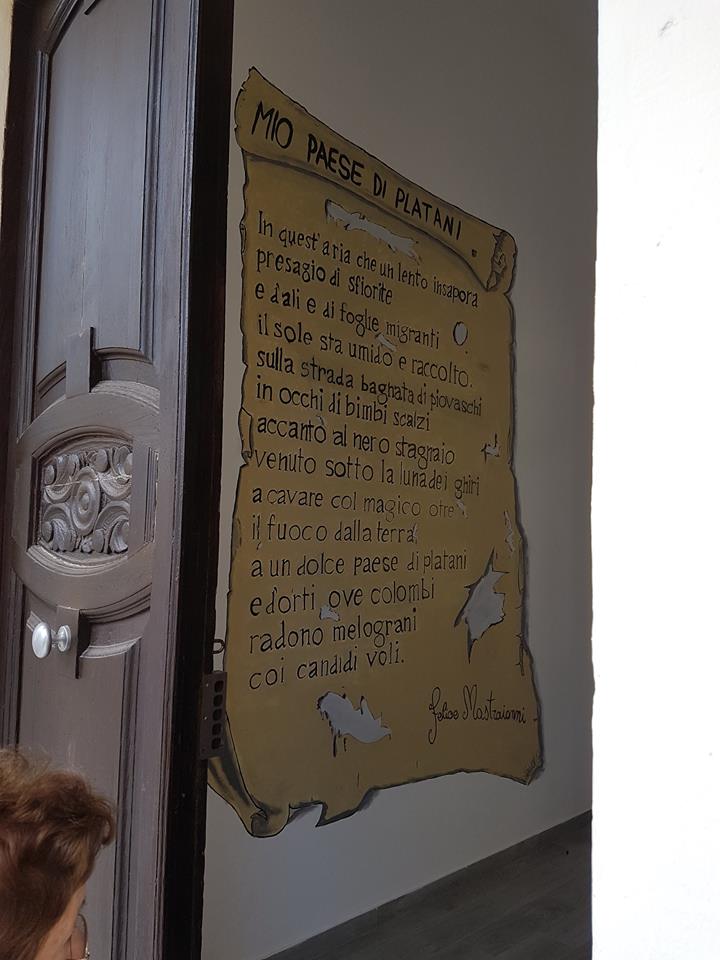 MIO PAESE DI PLATANI
In quest'aria che un lento insapora
presagio di sfiorite
e d'ali e di foglie migranti
il sole sta umido e raccolto.
sulla strada bagnata di piovaschi
in occhi di bimbi scalzi
accanto al nero stagnaio
venuto sotto la luna dei ghiri
a cavare col magico otre
il fuoco dalla terra
a un dolce paese di platani
e d'orti ove colombi
radono melograni
coi candidi voli.
Felice Mastroianni